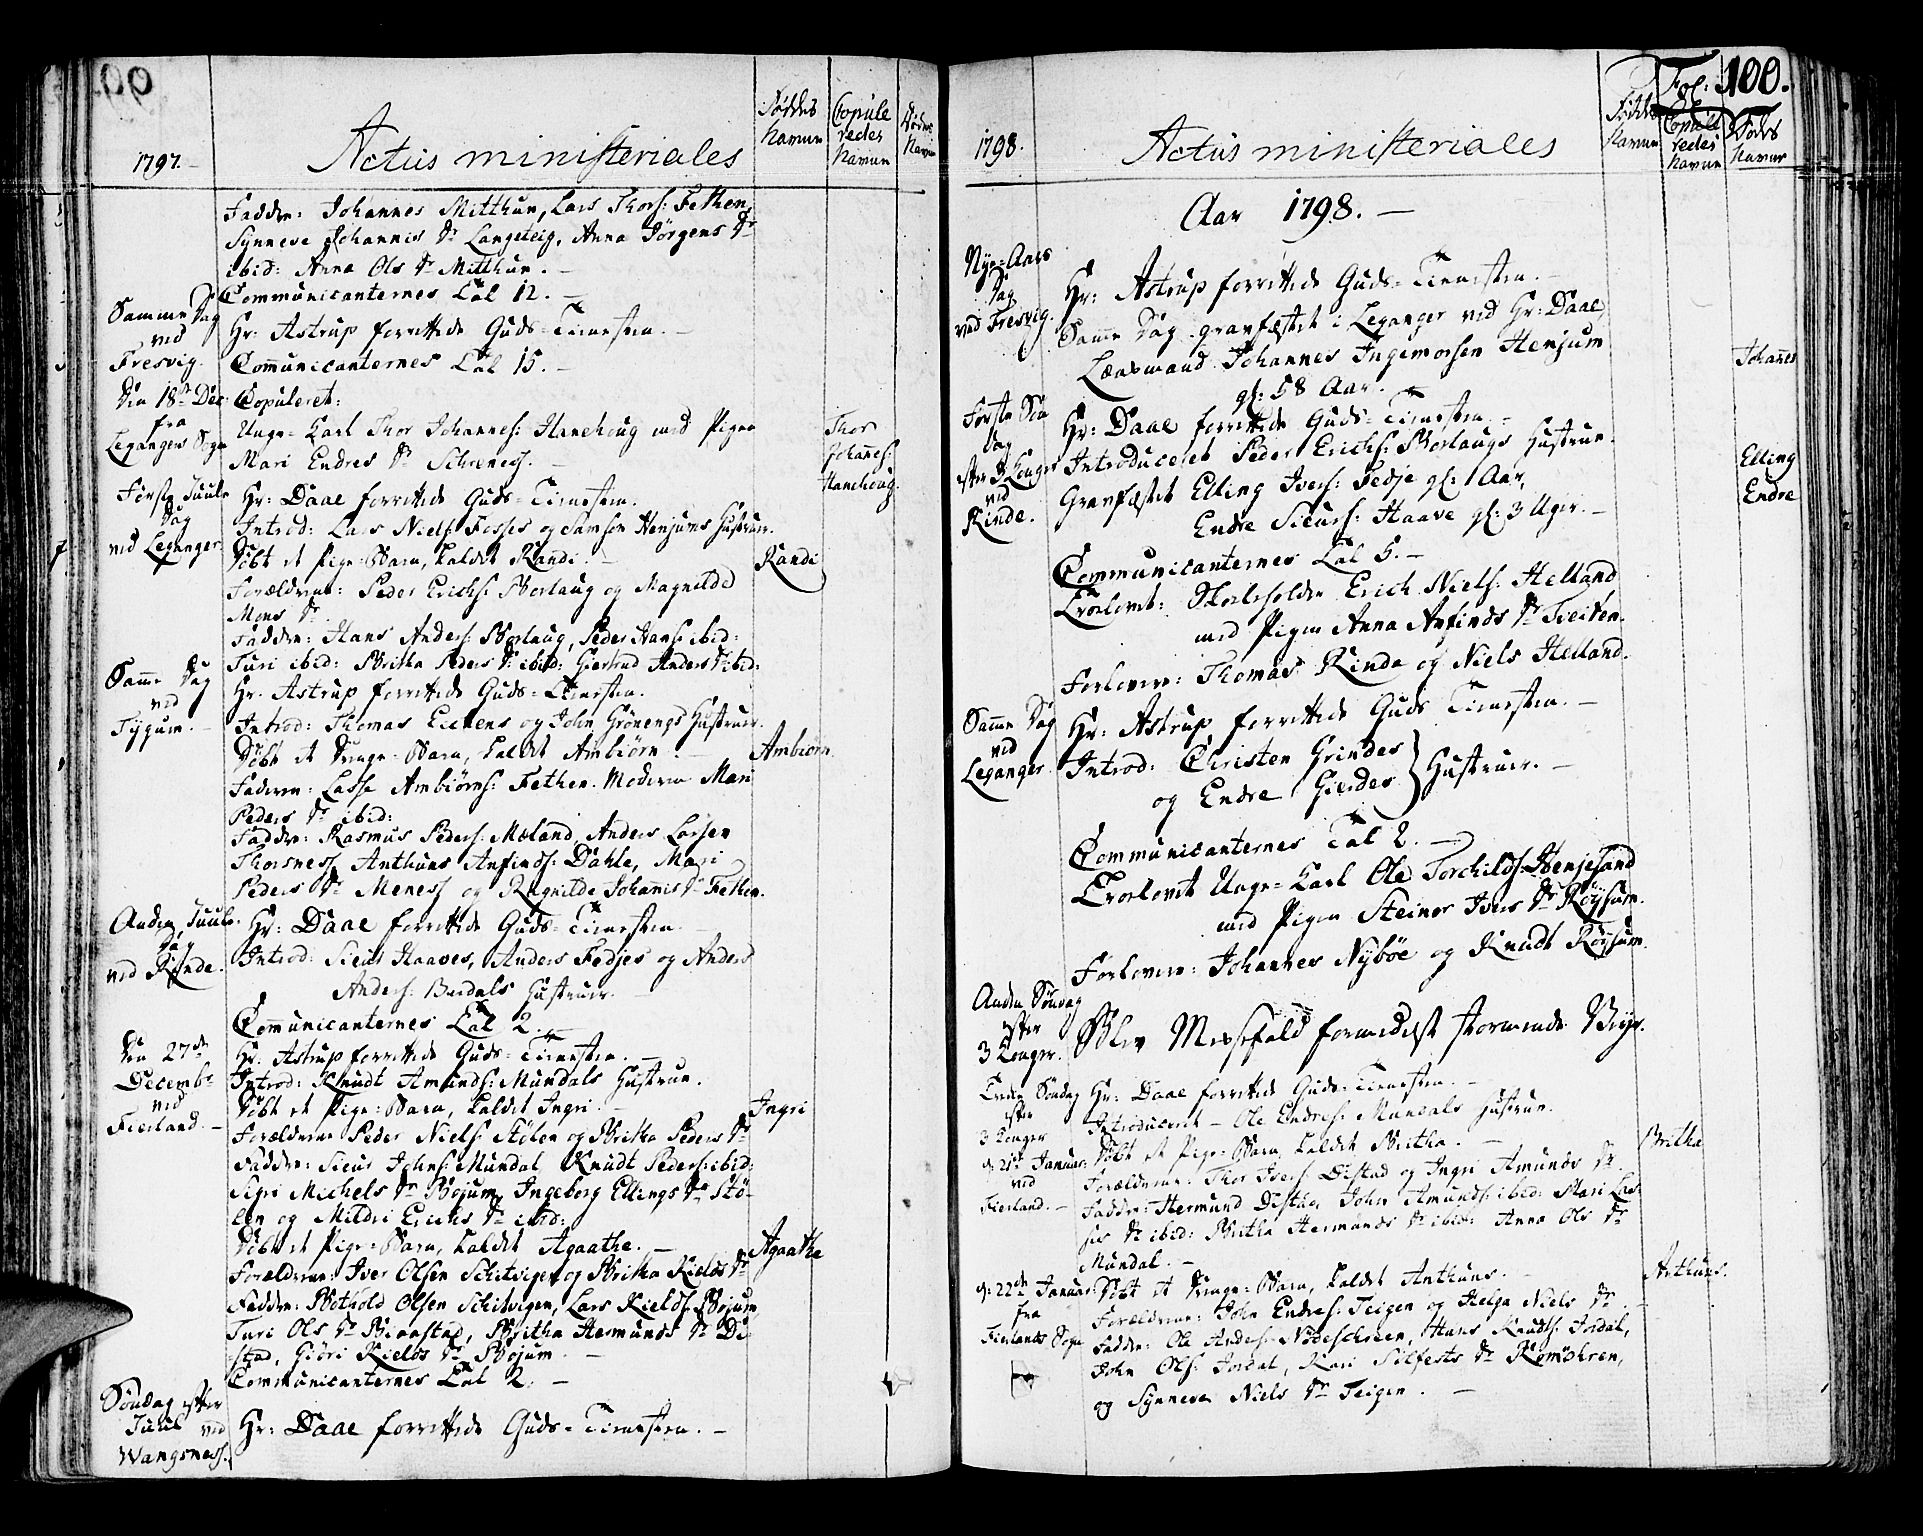 00
1797.
Actus ministeriales
Födtes Navne
Copuleredes Navne
Dödes Navne
Faddre: Johannes Mitthun, Lars Thors: Fethen,
Synneve Johannis Dr Langeteig, Anna Jörgens Dr
ibid: Anna Ols Dr Mitthun. —
Communicanternes Tal 12. —
Samme Dag
ved
Fresvig.
Hr: Astrup forrettede Guds-Tienesten. —
Communicanternes Tal 15. —
Den 18de Dec:
fra
Leganger Sogn
Copuleret:
Unge-Karl Thor Johannes: Hanehoug med Pigen
Mari Endres Dr Schrenes. —
Thor
Johannes:
Hanehoug.
Förste Juule
Dag
ved Leganger
Hr: Daae forrettede Guds-Tienesten.
Introd: Lars Niels: Fosses og Samson Henjums Hustruer.
Döbt et Pige-Barn, kaldet Randi. —
Randi
Forældrene: Peder Erichs: Borlaug og Magnilde
Mons Dr
Faddre: Hans Anders: Borlaug, Peder Hans: ibid:
Turi ibid: Britha Peders Dr ibid: Giertrud Anders Dr ibid:
Samme Dag
ved
Tygum. —
Hr. Astrup forrettede Guds-Tienesten.
Introd: Thomas Eitrens og John Grönengs Hustruer.
Döbt et Drenge-Barn, kaldet Ambiörn. —
Ambiörn.
Faderen: Lasse Ambiörns: Fethen. Moderen Mari
Peders Dr ibid:
Faddre: Rasmus Peders: Mæland, Anders Larsen
Thorsnes, Anthuns Anfinds: Dahle, Mari
Peders Dr Menes og Ragnilde Johannis Dr Fethen.
Anden Juule-
Dag
ved Rinde.
Hr: Daae forrettede Guds-Tienesten.
Introd: Sieur Haaves, Anders Fedjes og Anders
Anders: Bardals Hustruer. —
Communicanternes Tal 2. —
Den 27de
Decembr
ved
Fierland. —
Hr: Astrup forrettede Guds-Tienesten. —
Introd: Knudt Amunds: Mundals Hustrue.
Döbt et Pige-Barn, kaldet Ingri. —
Ingri
Forældrene Peder Niels: Stölen og Britha Peders Dr
Faddre: Sieur Johns: Mundal, Knudt Peders: ibid:
Sigri Michels Dr Böjum, Ingeborg Ellings Dr Stö-
len og Mildri Erichs Dr ibid:
Döbt et Pige-Barn, kaldet Agaathe. —
Agaathe
Forældrene: Iver Olsen Schitvigen og Britha Kields Dr
Faddre: Bothold Olsen Schitvigen, Lars Kields: Böjum
Turi Ols Dr Biaastad, Britha Hermunds Dr Di-
stad, Giöri Kields Dr Böjum. —
Communicanternes Tal 2. —
Söndag efter
Juul ved
Wangsnes.
Hr: Daae forrettede Guds-Tienesten. —
Fol: 100.
1798.
Actus ministeriales
Födtes Navne
Copuleredes Navne
Dödes Navne
Aar 1798. —
Nye-Aars
Dag
ved Fresvig.
Hr: Astrup forrettede Guds-Tienesten. —
Samme Dag gravfæstet i Leganger ved Hr: Daae,
Lænsmand Johannes Ingemorsen Henjum
gl: 58 Aar. —
Johannes
Förste Sön
dag
efter 3 Konger
ved
Rinde.
Hr: Daae forrettede Guds-Tienesten. —
Introduceret Peder Erichs: Borlaugs Hustrue.
Gravfæstet Elling Ivers: Fedje gl: 1 Aar,
Endre Sieurs: Haave gl: 3 Uger. —
Elling
Endre
Communicanternes Tal 5. —
Trolovet: Skoleholder Erich Niels: Helland
med Pigen Anna Anfinds Dr Freiten.
Forlovere: Thomas Rinde og Niels Helland.
Samme Dag
ved
Leganger
Hr: Astrup forrettede Guds Tienesten. —
Introd: Christen Grindes
og Endre Gierdes } Hustruer. —
Communicanternes Tal 2. —
Trolovet Unge-Karl Ole Torchilds: Henjesand
med Pigen Steinor Ivers Dr Röysum.
Forlovere: Johannes Nyböe og Knudt Röysum.
Anden Söndag
efter
3 Konger.
Blev Messefald formedelst stormende Veyr.
Tredie Söndag
efter
3 Konger
d: 21de Januar:
ved
Fierland. —
Hr: Daae forrettede Guds-Tienesten. —
Introduceret — Ole Endres: Mundals Hustrue.
Döbt et Pige-Barn, kaldet Britha. —
Britha
Forældrene: Thor Ivers: Distad og Ingri Amunds Dr
Faddre: Hermund Distad, John Amunds: ibid: Mari Las-
ses Dr ibid: Britha Hermunds Dr ibid: Anna Ols Dr
Mundal. —
d: 22de Januar:
fra
Fierlands Sogn
Döbt et Drenge-Barn, kaldet Anthuns. —
Anthuns.
Forældrene: John Endres: Teigen og Helga Niels Dr
Faddre: Ole Anders: Nödeschreen, Hans Knudts: Jordal,
John Ols: Jordal, Kari Silfests Dr Romöhren,
og Synneve Niels Dr Teigen. —